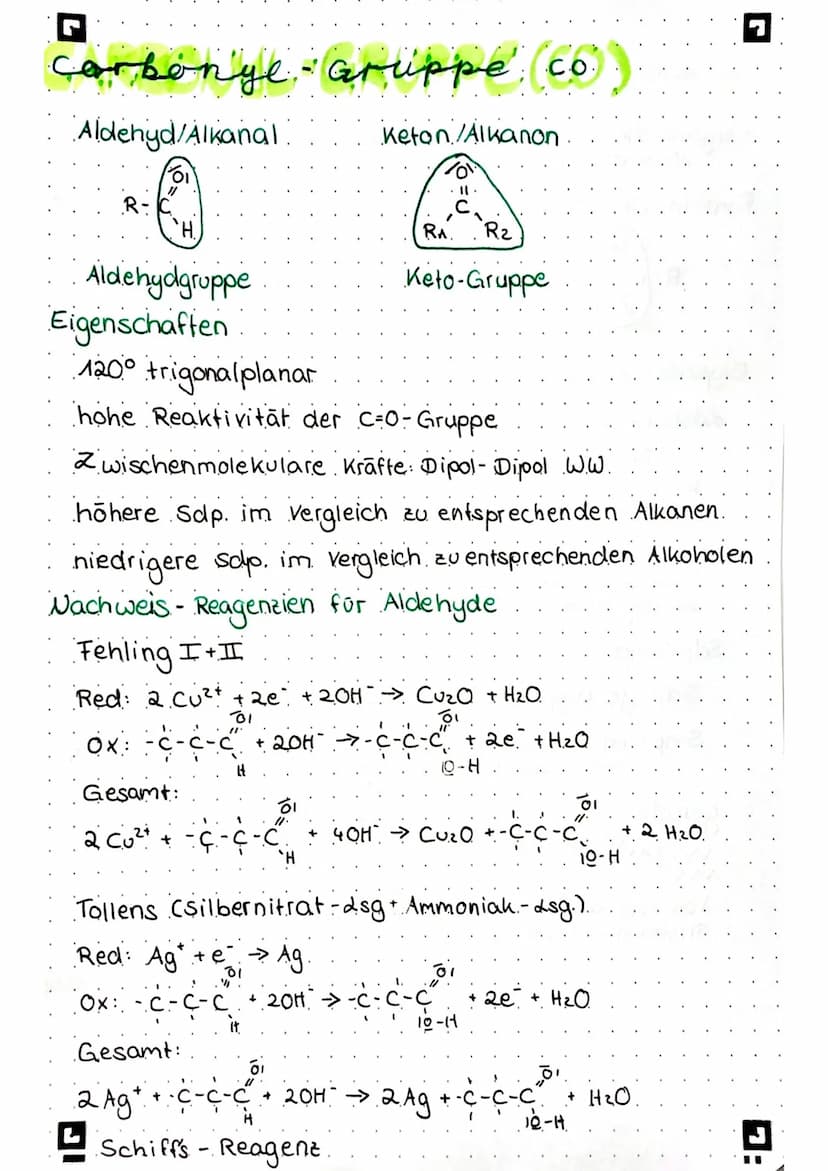 Carbonyl-Gruppe (CO)
Aldehyd/Alkanal Keton/Alkanon
R-C=O H
O=C R1 R2
Aldehydgruppe Keto-Gruppe
Eigenschaften
120° trigonalplanar
hohe Reaktivität der C=O-Gruppe
Zwischenmolekulare Kräfte: Dipol-Dipol WW.
höhere Sdp. im Vergleich zu entsprechenden Alkanen
niedrigere Sdp. im Vergleich zu entsprechenden Alkoholen
Nachweis-Reagenzien für Aldehyde
Fehling I+II
Red: 2 Cu²⁺ + 2e⁻ + 2OH⁻ → Cu₂O + H₂O
Ox: -C-C-C=O H + 2OH⁻ → -C-C-C=O O-H + 2e⁻ + H₂O
Gesamt:
2 Cu²⁺ + -C-C-C=O H + 4OH⁻ → Cu₂O + -C-C-C=O O-H + 2 H₂O
Tollens (Silbernitrat-Lsg + Ammoniak-Lsg.)
Red: Ag⁺ + e⁻ → Ag
Ox: -C-C-C=O H + 2OH⁻ → -C-C-C=O O-H + 2e⁻ + H₂O
Gesamt:
2 Ag⁺ + -C-C-C=O H + 2OH⁻ → 2 Ag + -C-C-C=O O-H + H₂O
Schiff's-Reagenz